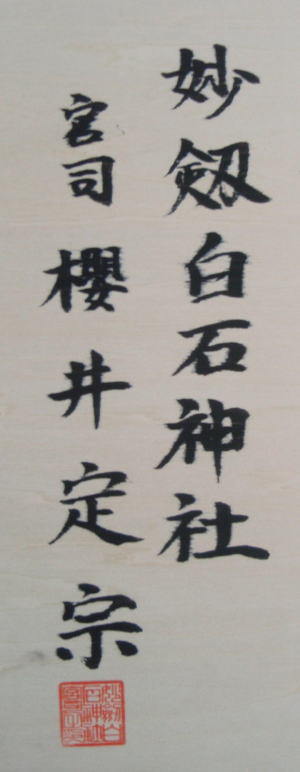 妙剱白石神社
宮司 櫻井定宗